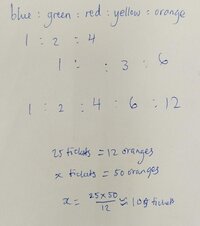 blue : green : red : yellow : orange
1 : 2 : 4
1 : : 3 : 6
1 : 2 : 4 : 6 : 12
25 tickets = 12 oranges
x tickets = 50 oranges
x = 25 x 50 / 12 ≈ tickets